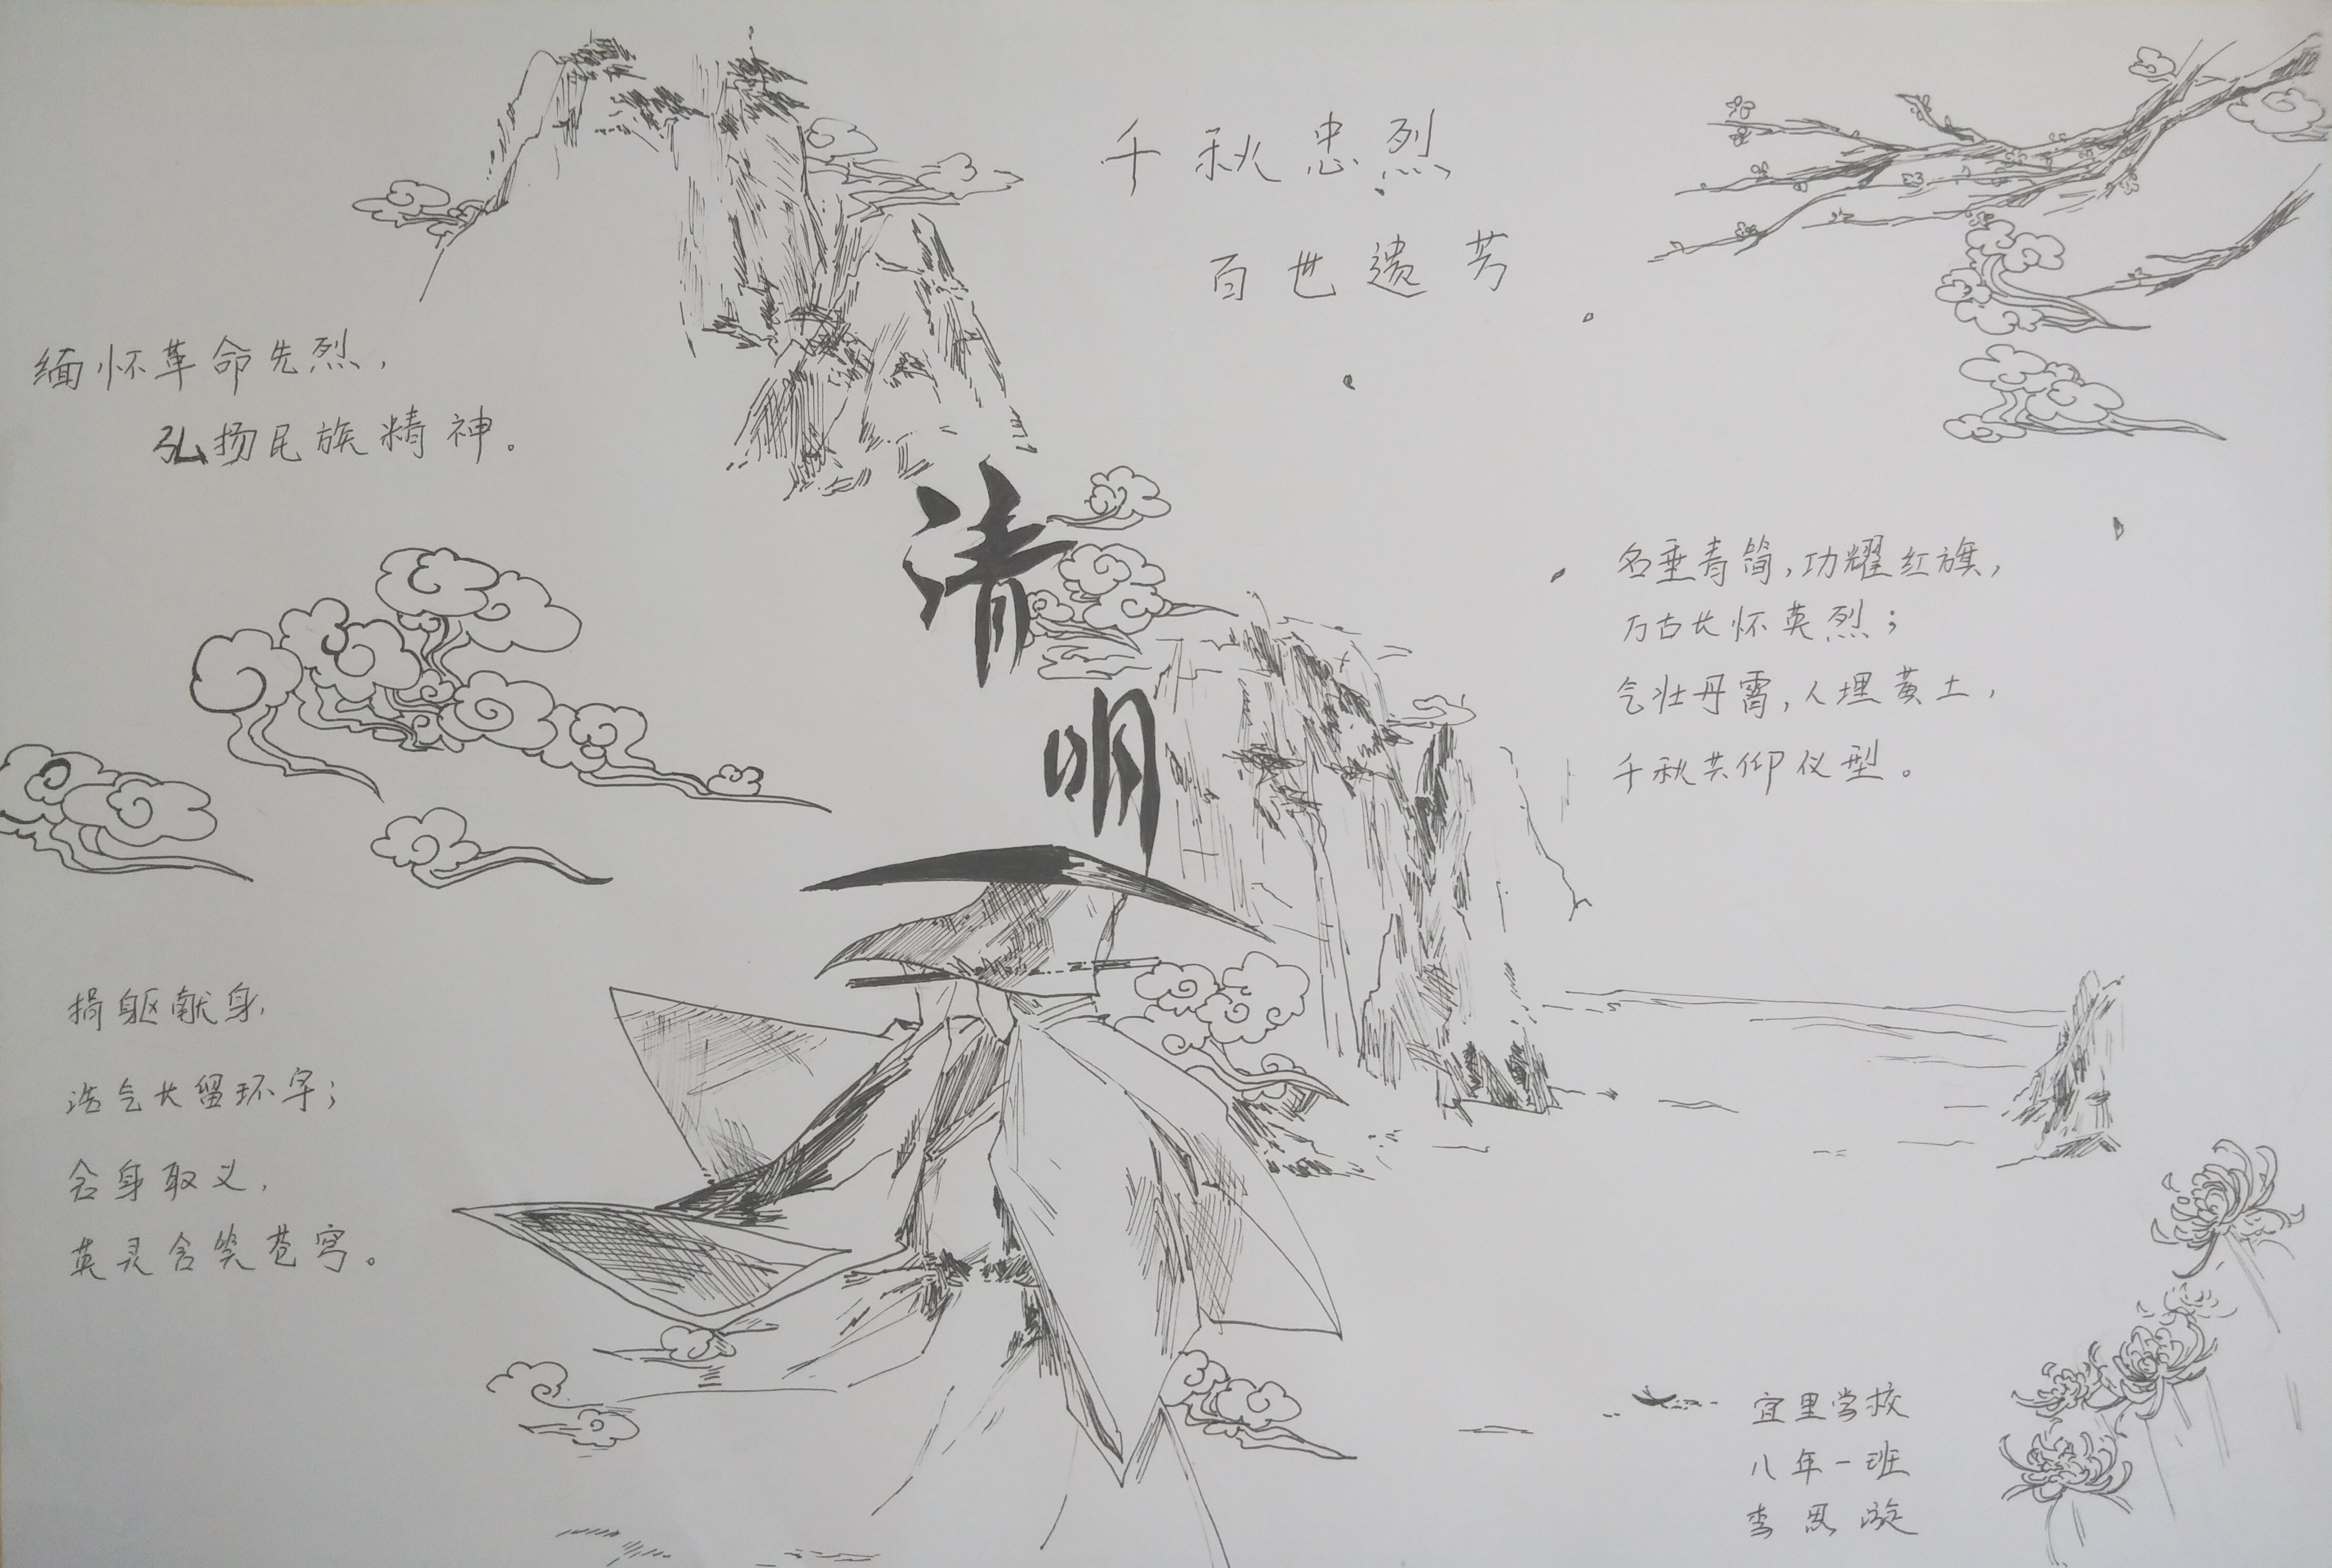 千秋忠烈
百世遗芳
缅怀革命先烈，
弘扬民族精神。
清
明
名垂青简，功耀红旗，
万古长怀英烈；
气壮丹霄，人埋黄土，
千秋共仰仪型。
捐躯献身，
浩气长留环宇；
舍身取义，
英灵含笑苍穹。
宜里学校
八年一班
李思漩